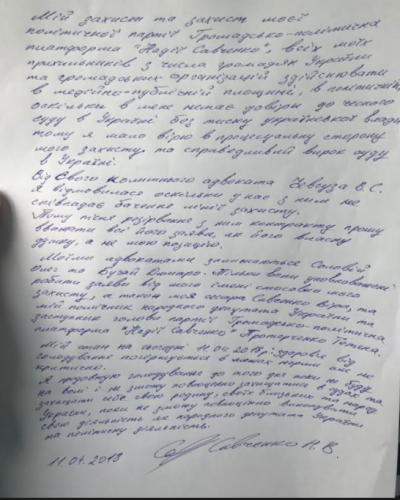 Мій захист та захист моєї
політичної партії Громадсько-політична
платформа "Надії Савченко", всіх моїх
прихильників з числа громадян України
та громадських організацій здійснювати
в медійно-публічній площині, в політичній
оскільки в мене немає довіри до чесного
суду в Україні без тиску української влади
тому я мало вірю в процесуальну сторону
мого захисту та справедливий вирок суду
в Україні.
Від Свого колишнього адвоката Чевгуза В.С.
Я відмовилася оскільки у нас з ним не
співпадає бачення лінії захисту.
Тому після розірвання з ним контракту прошу
вважати всі його заяви, як його власну
думку, а не мою позицію.
Моїми адвокатами залишаються Соловей
Олег та Бузай Дмитро. Тільки вони уповноважені
робити заяви від мого імені стосовно мого
захисту, а також моя сестра Савченко Віра, та
мій помічник народного депутата України та
заступник голови партії Громадсько-політична
платформа "Надії Савченко" Протороченко Тетяна.
Мій стан на сьогодні 11.04.2018р: Здоров'я від
голодування погіршується в межах норми але не
критично.
Я продовжую голодування до того дня поки не буду
на волі і не зможу повноцінно захищатись в судах та
захищати себе свою родину, своїх близьких та народ
України, поки не зможу повноцінно виконувати
свою діяльність як народного депутата України
та політичну діяльність.
11.04.2018 Савченко Н.В.